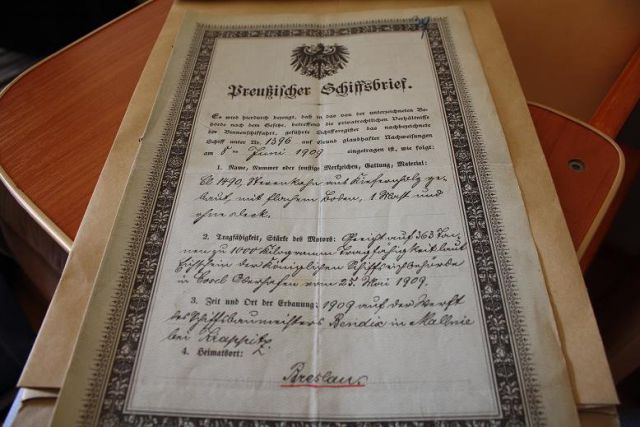 Preußischer Schiffsbrief.
Es wird hierdurch bezeugt, daß in das von der unterzeichneten Be-
hörde nach dem Gesetze, betreffend die privatrechtlichen Verhältnisse
der Binnenschiffahrt, geführte Schiffsregister das nachbezeichnete
Schiff unter Nr. 1396 auf Grund glaubhafter Nachweisungen
am 8ten Juni 1909 eingetragen ist, wie folgt:
1. Name, Nummer oder sonstige Merkzeichen, Gattung, Material:
1490, aus Kiefernholz ge-
baut mit flachem Boden, 1 Mast und
ohne Deck.
2. Tragfähigkeit, Stärke des Motors: Geeicht auf 363 Ton-
nen zu 1000 Kilogramm Tragfähigkeit laut
Eichschein der Königlichen Schiffseichbehörde
in Cosel Oberhafen vom 25. Mai 1909.
3. Zeit und Ort der Erbauung: 1909 auf der Werft
des Schiffsbaumeisters Bendix in Mallnie
bei Krappitz
4. Heimatsort:
Breslau.